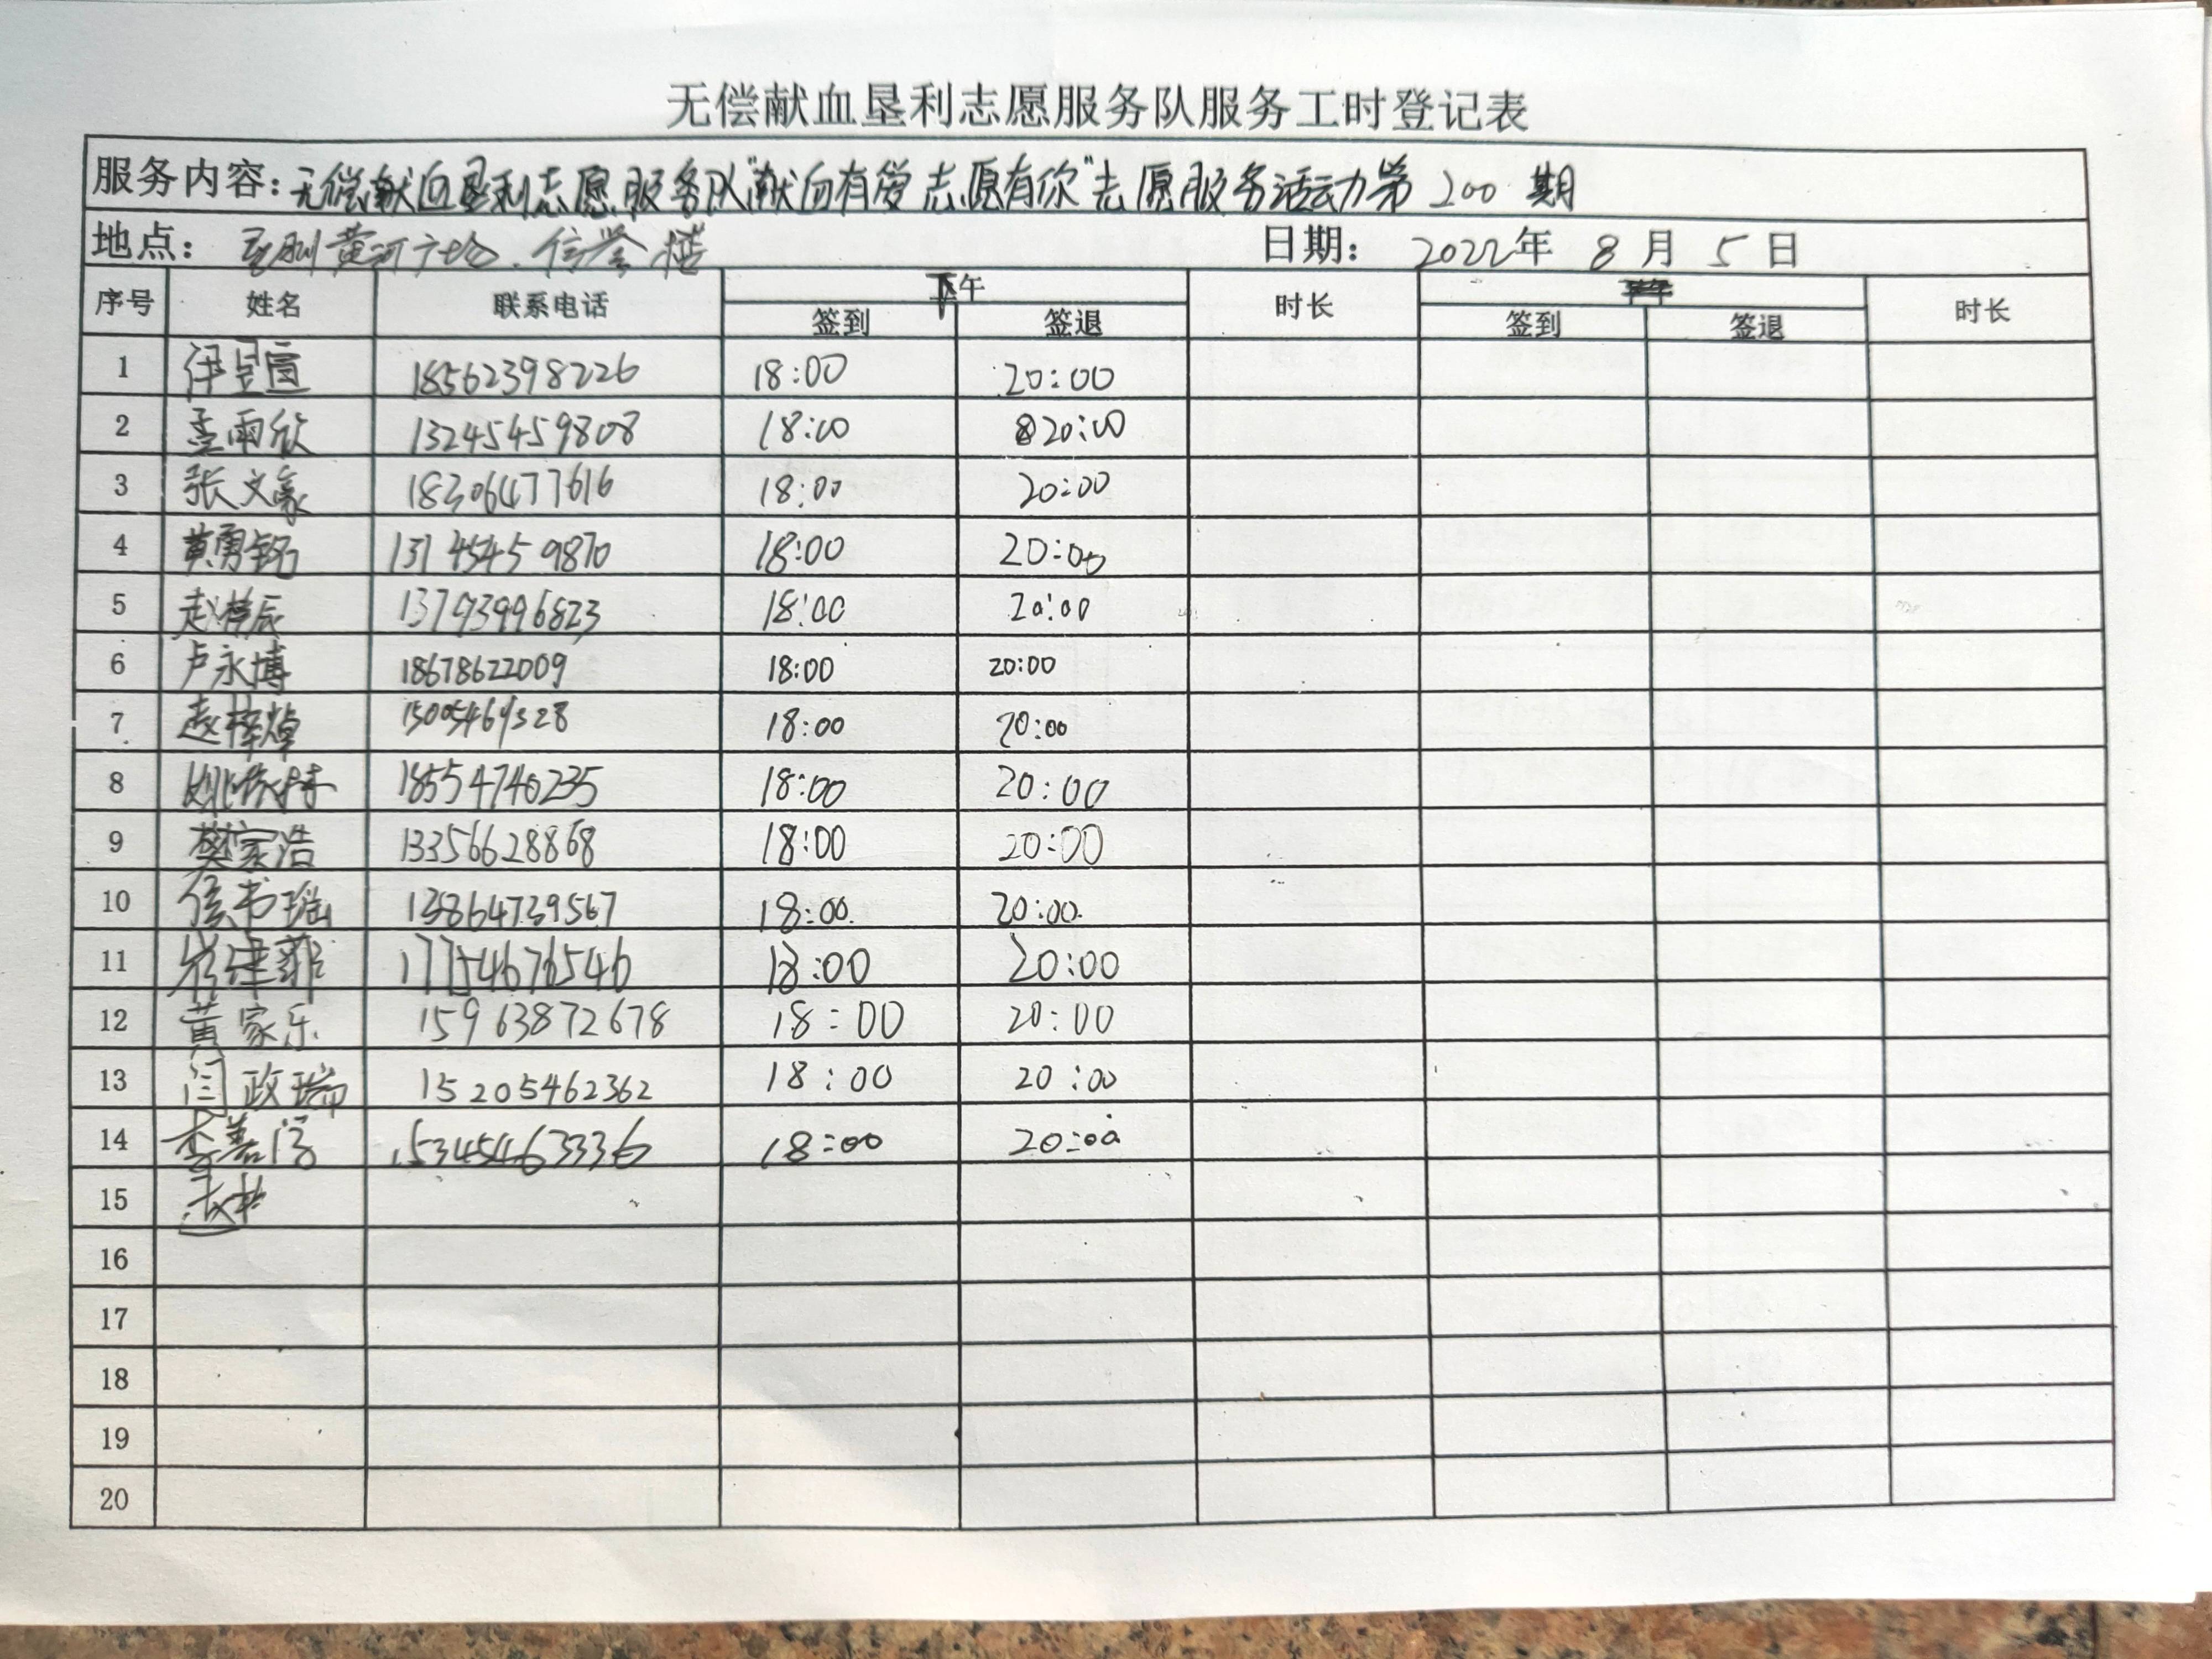 无偿献血垦利志愿服务队服务工时登记表
服务内容：无偿献血垦利志愿服务队"献血有爱 志愿有你"志愿服务活动第 200 期
地点： 垦利黄河广场、信誉楼 日期： 2022年 8月 5日
序号 姓名 联系电话 下午 时长 时长
签到 签退 签到 签退
1 伊昱萱 18562398226 18:00 20:00
2 孟雨欣 13245459808 18:00 20:00
3 张文豪 18306477616 18:00 20:00
4 黄勇铭 13145459870 18:00 20:00
5 赵梓辰 13793996823 18:00 20:00
6 卢永博 18678622009 18:00 20:00
7 赵梓焯 18:00 20:00
8 18554740235 18:00 20:00
9 樊家浩 13356628868 18:00 20:00
10 侯书瑶 13864739567 18:00 20:00
11 17754676546 18:00 20:00
12 黄家乐 15963872678 18:00 20:00
13 闫政瑞 15205462362 18:00 20:00
14 15345463336 18:00 20:00
15
16
17
18
19
20